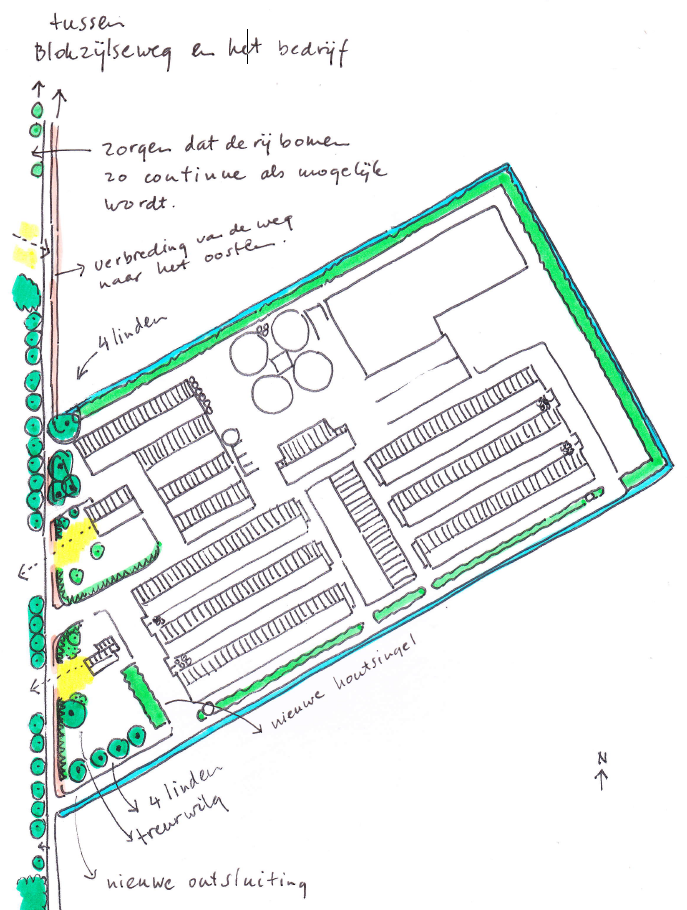 tussen
Blokzijlseweg en het bedrijf
zorgen dat de rij bomen
zo continue als mogelijk
wordt.
verbreding van de weg
naar het oosten.
4 linden
nieuwe houtsingel
N
4 linden
treurwilg
nieuwe ontsluiting